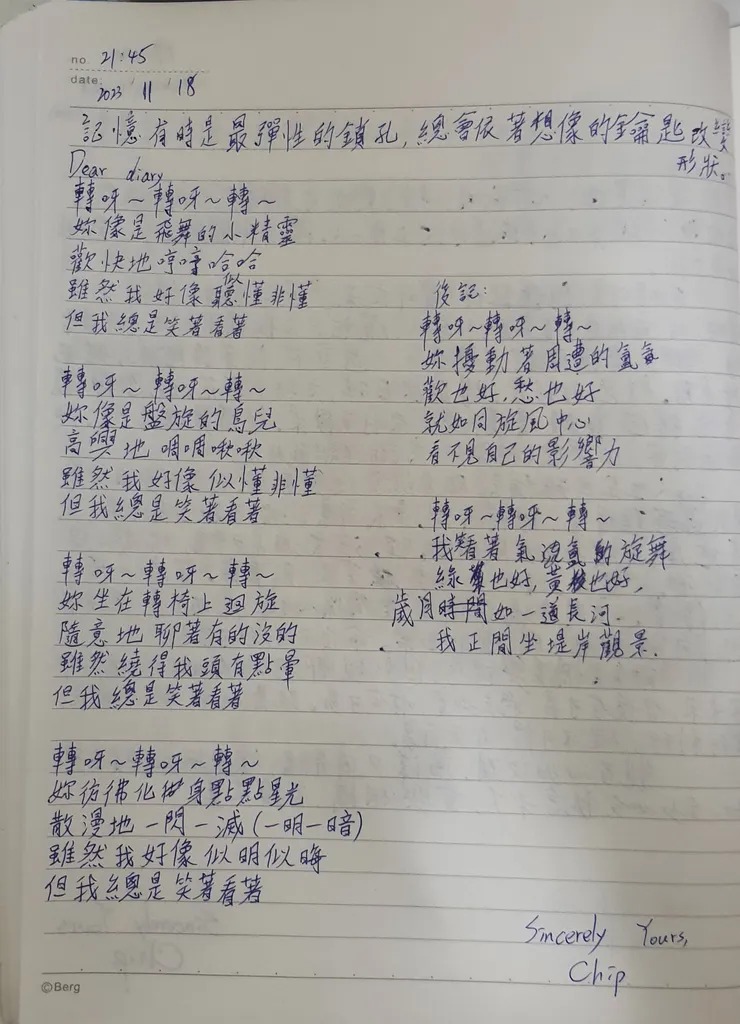 no 21:45
date: 2023 11 18
記憶有時是最彈性的鎖孔,總會依著想像的鑰匙改變
形狀。
Dear diary
轉呀~轉呀~轉~
妳像是飛舞的小精靈
歡快地哼哼哈哈
雖然我好像聽似懂非懂
但我總是笑著看著
轉呀~轉呀~轉~
妳像是盤旋的鳥兒
高興地啁啁啾啾
雖然我好像似懂非懂
但我總是笑著看著
轉呀~轉呀~轉~
妳坐在轉椅上迴旋
隨意地聊著有的沒的
雖然繞得我頭有點暈
但我總是笑著看著
轉呀~轉呀~轉~
妳彷彿化身點點星光
散漫地一閃一滅(一明一暗)
雖然我好像似明似晦
但我總是笑著看著
後記:
轉呀~轉呀~轉~
妳擾動著周遭的氫氣
歡也好,愁也好
就如同旋風中心
看不見自己的影響力
轉呀~轉呀~轉~
我看著氣流氫的旋舞
綠也好,黃也好,
歲月時間如一道長河.
我正閒坐堤岸觀景.
Sincerely Yours,
Chip
©Berg